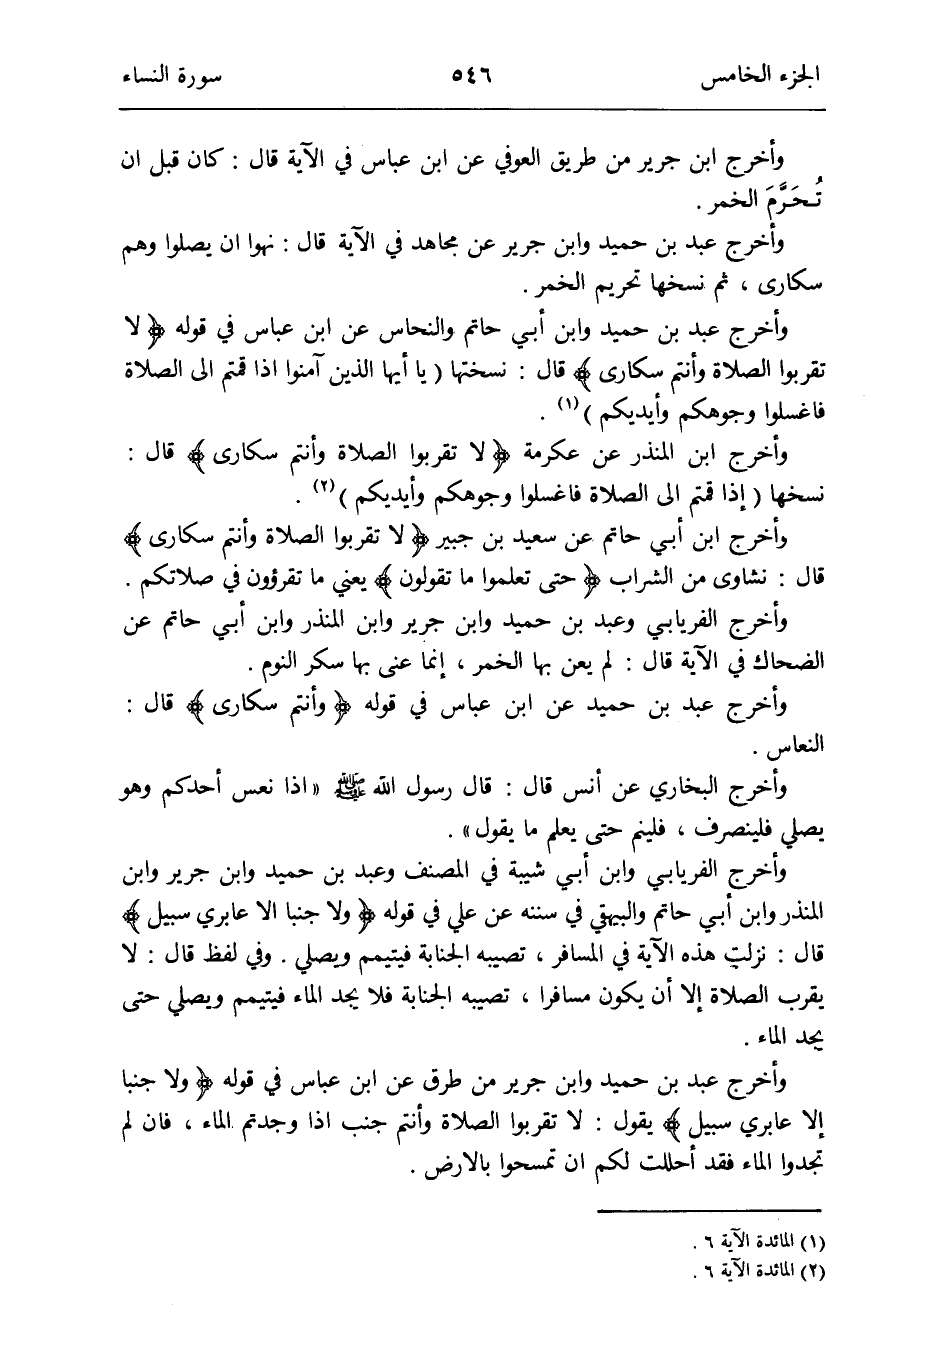 الجزء الخامس ٥٤٦ سورة النساء
وأخرج ابن جرير من طريق العوفي عن ابن عباس في الآية قال : كان قبل ان
تُحَرَّمَ الخمر .
وأخرج عبد بن حميد وابن جرير عن مجاهد في الآية قال : نهوا ان يصلوا وهم
سكارى ، ثم نسخها تحريم الخمر .
وأخرج عبد بن حميد وابن أبي حاتم والنحاس عن ابن عباس في قوله ﴿ لا
تقربوا الصلاة وأنتم سكارى ﴾ قال : نسختها ( يا أيها الذين آمنوا اذا قمتم الى الصلاة
فاغسلوا وجوهكم وأيديكم )(١) .
وأخرج ابن المنذر عن عكرمة ﴿ لا تقربوا الصلاة وأنتم سكارى ﴾ قال :
نسخها ( إذا قمتم الى الصلاة فاغسلوا وجوهكم وأيديكم )(٢) .
وأخرج ابن أبي حاتم عن سعيد بن جبير ﴿ لا تقربوا الصلاة وأنتم سكارى ﴾
قال : نشاوى من الشراب ﴿ حتى تعلموا ما تقولون ﴾ يعني ما تقرؤون في صلاتكم .
وأخرج الفريابي وعبد بن حميد وابن جرير وابن المنذر وابن أبي حاتم عن
الضحاك في الآية قال : لم يعن بها الخمر ، إنما عنى بها سكر النوم .
وأخرج عبد بن حميد عن ابن عباس في قوله ﴿ وأنتم سكارى ﴾ قال :
النعاس .
وأخرج البخاري عن أنس قال : قال رسول الله ﷺ « اذا نعس أحدكم وهو
يصلي فلينصرف ، فلينم حتى يعلم ما يقول » .
وأخرج الفريابي وابن أبي شيبة في المصنف وعبد بن حميد وابن جرير وابن
المنذر وابن أبي حاتم والبيهقي في سننه عن علي في قوله ﴿ ولا جنبا الا عابري سبيل ﴾
قال : نزلت هذه الآية في المسافر ، تصيبه الجنابة فيتيمم ويصلي . وفي لفظ قال : لا
يقرب الصلاة إلا أن يكون مسافرا ، تصيبه الجنابة فلا يجد الماء فيتيمم ويصلي حتى
يجد الماء .
وأخرج عبد بن حميد وابن جرير من طرق عن ابن عباس في قوله ﴿ ولا جنبا
إلا عابري سبيل ﴾ يقول : لا تقربوا الصلاة وأنتم جنب اذا وجدتم الماء ، فان لم
تجدوا الماء فقد أحللت لكم ان تمسحوا بالارض .
(١) المائدة الآية ٦ .
(٢) المائدة الآية ٦ .